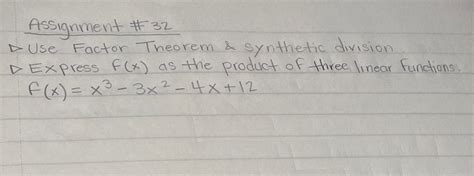 Assignment #32
▷ Use Factor Theorem & synthetic division
▷ Express f(x) as the product of three linear functions.
f(x) = x³ - 3x² - 4x + 12